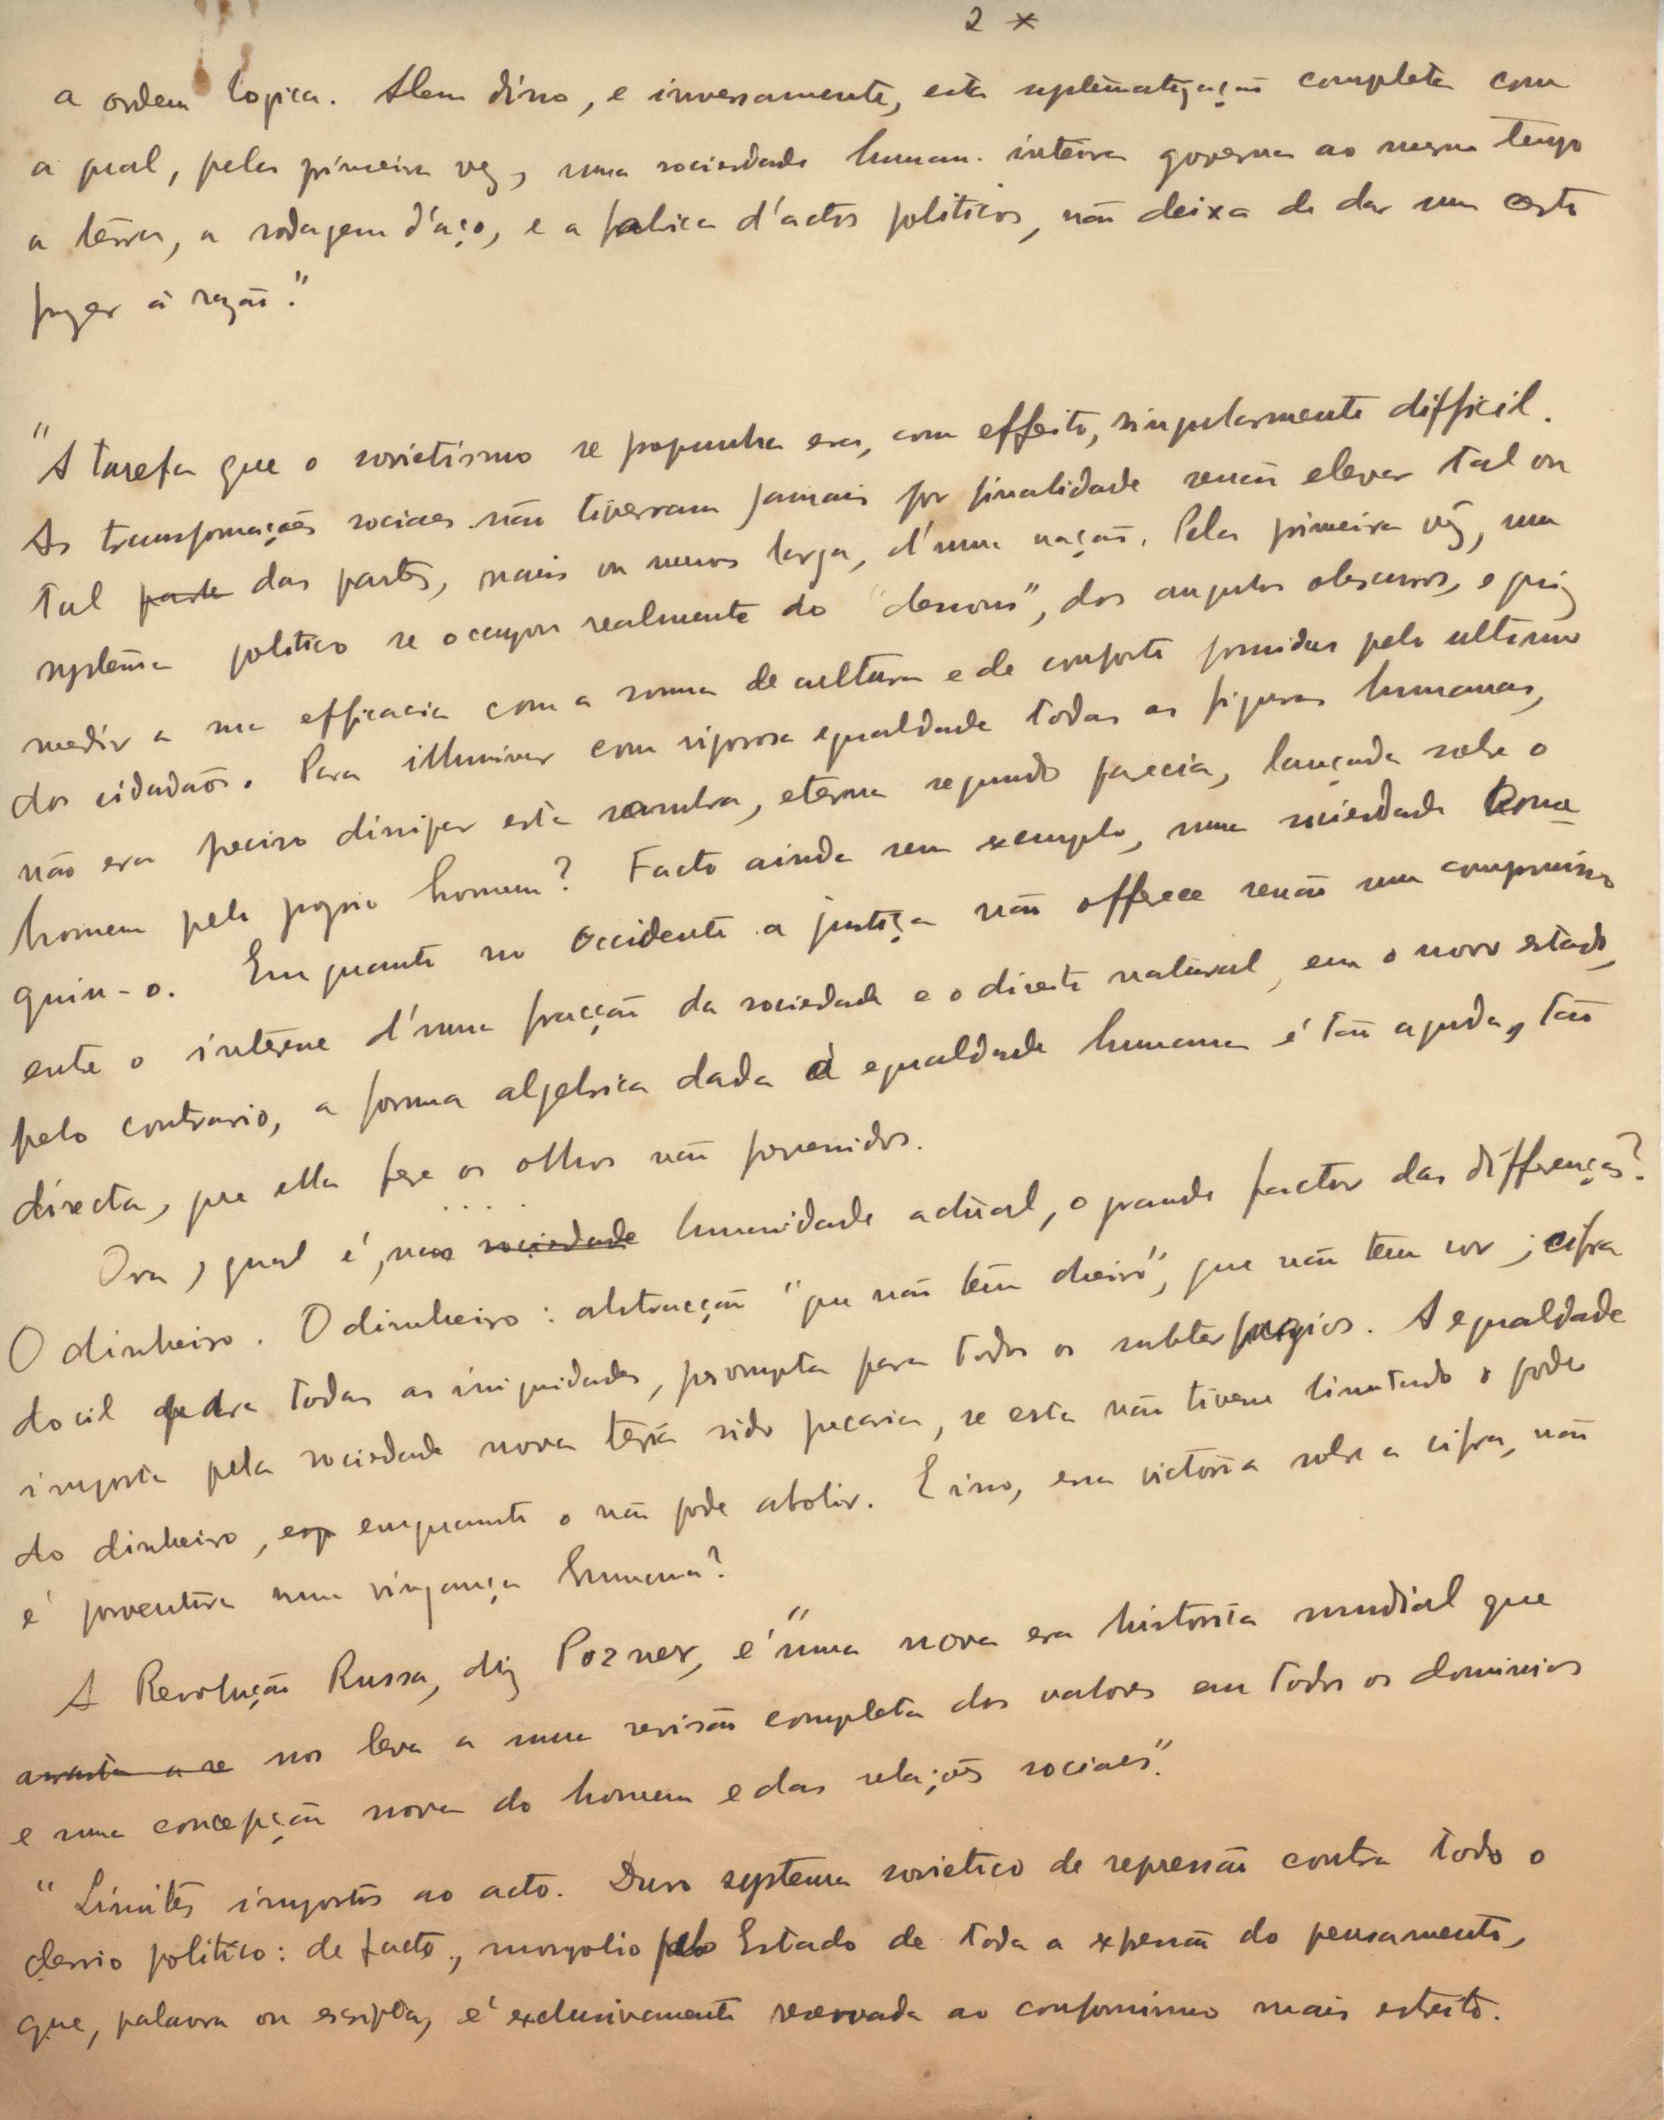 2 *
a ordem logica. Alem disso, e inversamente, esta systematização completa com
a qual, pela primeira vez, uma sociedade human. inteira governa ao mesmo tempo
a terra, a rodagem d'aço, e a fabrica d'actos politicos, não deixa de dar um certo
prazer á razão."
"A tarefa que o sovietismo se propunha era, com effeito, singularmente difficil.
As transformações sociaes não tiverram jamais por finalidade senão elevar tal ou
tal parte das partes, mais ou menos larga, d'uma nação. Pela primeira vêz, um
systema politico se occupou realmente do "dessous", dos angulos obscuros, e quiz
medir a sua efficacia com a somma de cultura e de conforto fornidas pelo ultimo
dos cidadãos. Para illuminar com rigorosa egualdade todas as figuras humanas,
não era preciso dissipar esta sombra, eterna segundo parecia, lançada sobre o
homem pelo proprio homem? Facto ainda sem exemplo, uma sociedade
quiz-o. Em quanto no Occidente a justiça não offerece senão um compromisso
entre o interesse d'uma fracção da sociedade e o direito natural, em o novo estado,
pelo contrario, a forma algebrica dada á egualdade humana é tão aguda, tão
directa, que ella fere os olhos não prevenidos.
.....
Ora, qual é, na sociedade humanidade actual, o grande factor das differenças?
O dinheiro. O dinheiro: abstracção "que não têm cheiro", que não têm cor; cifra
docil para todas as iniquidades, prompta para todos os subterfugios. A egualdade
imposta pela sociedade nova teria sido precaria, se esta não tivesse limitado o poder
do dinheiro, esp emquanto o não pode abolir. E isso, essa victoria sobre a cifra, não
é porventura uma vingança humana?
A Revolução Russa, diz Pozner, é "uma nova era historia mundial que
arrasta a re nos leva a uma revisão completa dos valores em todos os dominios
e uma concepção nova do homem e das relações sociaes".
"Limites impostos ao acto. Duro systema sovietico de repressão contra todo o
desvio politico: de facto, monopolio pelo Estado de toda a expressão do pensamento,
que, palavra ou escripta, é exclusivamente reservada ao conformismo mais estreito.